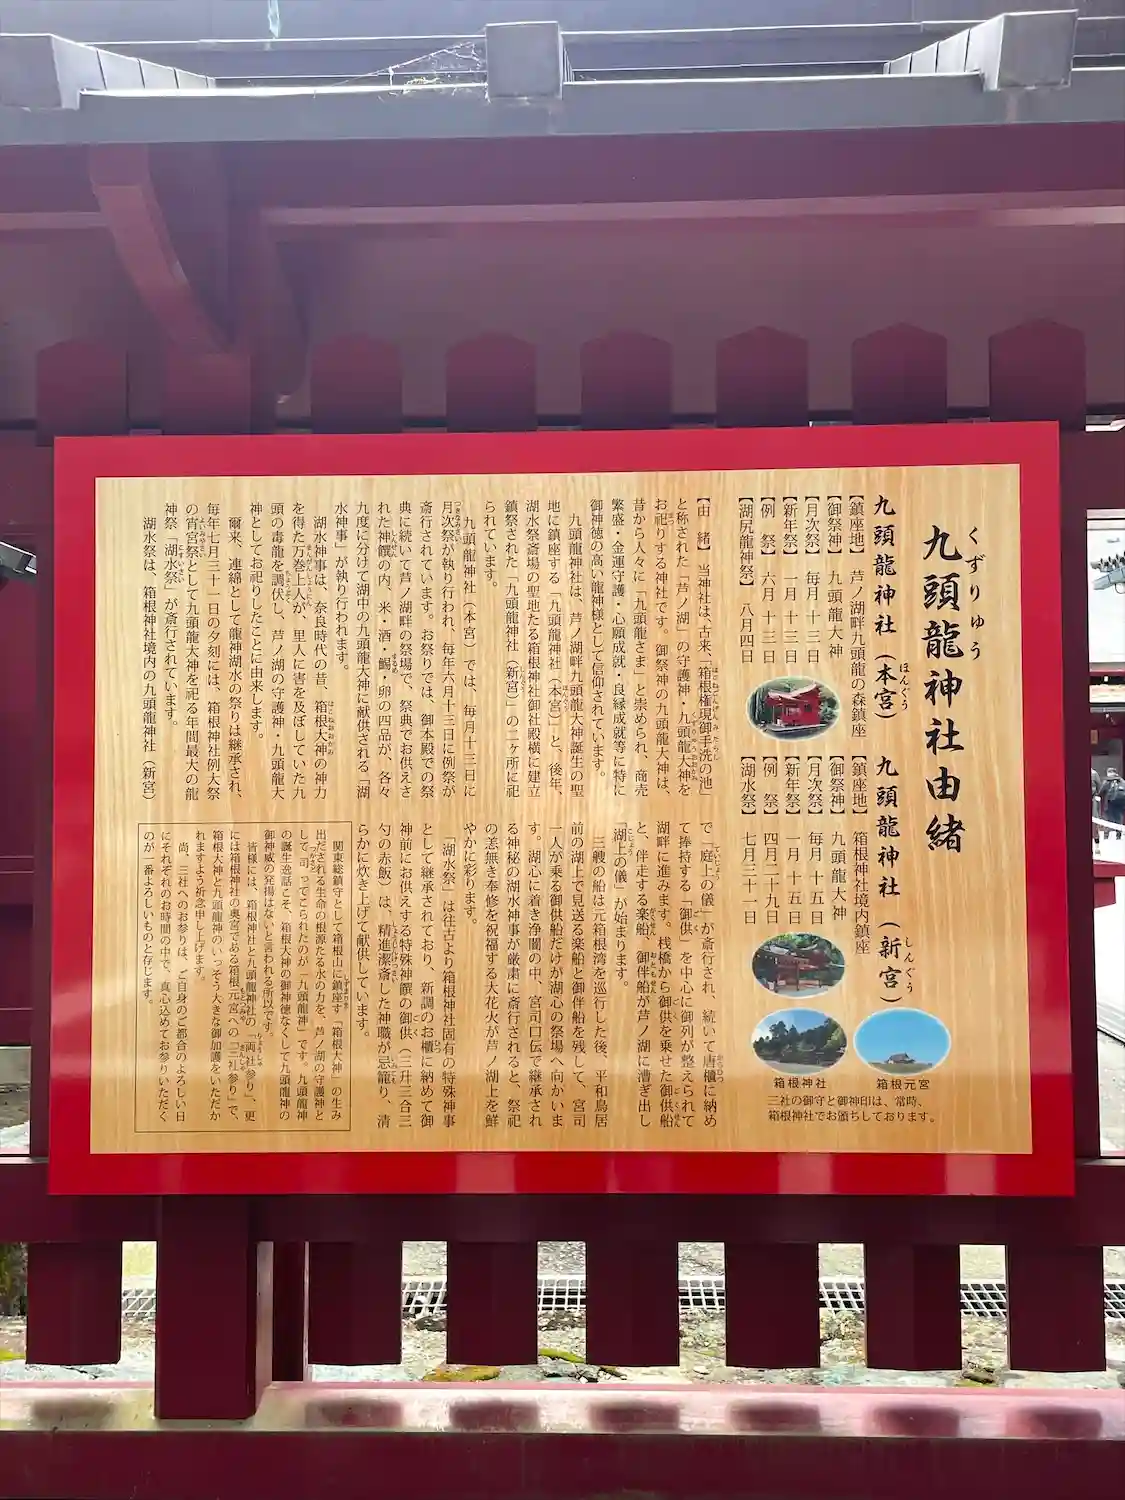 九頭龍神社由緒
くずりゅう
九頭龍神社（本宮）
ほんぐう
【鎮座地】 芦ノ湖畔九頭龍の森鎮座
【御祭神】 九頭龍大神
【月次祭】 毎月十三日
【新年祭】 一月十三日
【例　祭】 六月十三日
【湖尻龍神祭】 八月四日
九頭龍神社（新宮）
しんぐう
【鎮座地】 箱根神社境内鎮座
【御祭神】 九頭龍大神
【月次祭】 毎月十五日
【新年祭】 一月十五日
【例　祭】 四月二十九日
【湖水祭】 七月三十一日
箱根元宮
箱根神社
三社の御守と御神印は、當時、
箱根神社でお頒ちしております。
【由　緒】 当神社は、古来、「箱根権現御手洗の池」
と称された「芦ノ湖」の守護神・九頭龍大神を
お祀りする神社です。御祭神の九頭龍大神は、
昔から人々に「九頭龍さま」と崇められ、商売
繁盛・金運守護・心願成就・良縁成就等に特に
御神徳の高い龍神様として信仰されています。
九頭龍神社は、芦ノ湖畔九頭龍大神誕生の聖
地に鎮座する「九頭龍神社（本宮）」と、後年、
湖水祭斎場の聖地たる箱根神社御社殿横に建立
鎮祭された「九頭龍神社（新宮）」の二ヶ所に祀
られています。
九頭龍神社（本宮）では、毎月十三日に
月次祭が執り行われ、毎年六月十三日に例祭が
斎行されています。お祭りでは、御本殿での祭
典に続いて芦ノ湖畔の祭場で、祭典でお供えさ
れた神饌の内、米・酒・鯣・卵の四品が、各々
九度に分けて湖中の九頭龍大神に献供される「湖
水神事」が執り行われます。
湖水神事は、奈良時代の昔、箱根大神の神力
を得た万巻上人が、里人に害を及ぼしていた九
頭の毒龍を調伏し、芦ノ湖の守護神・九頭龍大
神としてお祀りしたことに由来します。
爾来、連綿として龍神湖水の祭りは継承され、
毎年七月三十一日の夕刻には、箱根神社例大祭
の宵宮祭として九頭龍大神を祀る年間最大の龍
神祭「湖水祭」が斎行されています。
湖水祭は、箱根神社境内の九頭龍神社（新宮）
で「庭上の儀」が斎行され、続いて唐櫃に納め
て捧持する「御供」を中心に御列が整えられて
湖畔に進みます。桟橋から御供を乗せた御供船
と、伴走する楽船、御伴船が芦ノ湖に漕ぎ出し
「湖上の儀」が始まります。
三艘の船は元箱根湾を巡行した後、平和鳥居
前の湖上で見送る楽船と御伴船を残して、宮司
一人が乗る御供船だけが湖心の祭場へ向かいま
す。湖心に着き浄闇の中、宮司口伝で継承され
る神秘の湖水神事が厳粛に斎行されると、祭祀
の恙無き奉修を祝福する大花火が芦ノ湖上を鮮
やかに彩ります。
「湖水祭」は往古より箱根神社固有の特殊神事
として継承されており、新調のお櫃に納めて御
神前にお供えする特殊神饌の御供（三升三合三
勺の赤飯）は、精進潔斎した神職が忌籠り、清
らかに炊き上げて献供しています。
関東総鎮守として箱根山に鎮座す「箱根大神」の生み
出だされる生命の根源たる水の力を、芦ノ湖の守護神と
して司ってこられたのが「九頭龍神」です。九頭龍神
の誕生逸話こそ、箱根大神の御神徳なくして九頭龍神の
御神威の発揚はないと言われる所以です。
皆様には、箱根神社と九頭龍神社の「両社参り」、更
には箱根神社の奥宮である箱根元宮への「三社参り」で、
箱根大神と九頭龍大神のいっそう大きな御加護をいただか
れますよう祈念申し上げます。
尚、三社へのお参りは、ご自身のご都合のよろしい日
にそれぞれのお時間の中で、真心込めてお参りいただく
のが一番よろしいものと存じます。